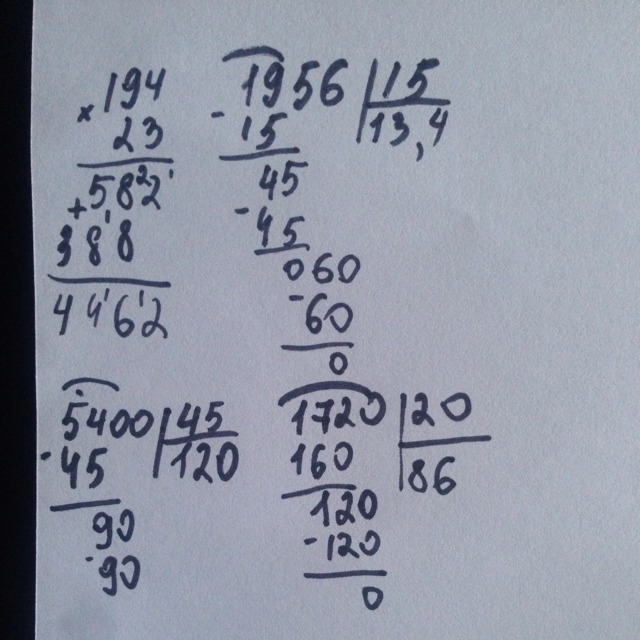 194
× 23
+ 582
388
4462
1956 | 15
- 15 13,4
45
- 45
060
- 60
0
5400 | 45
- 45 120
90
- 90
1720 | 20
160 86
120
- 120
0